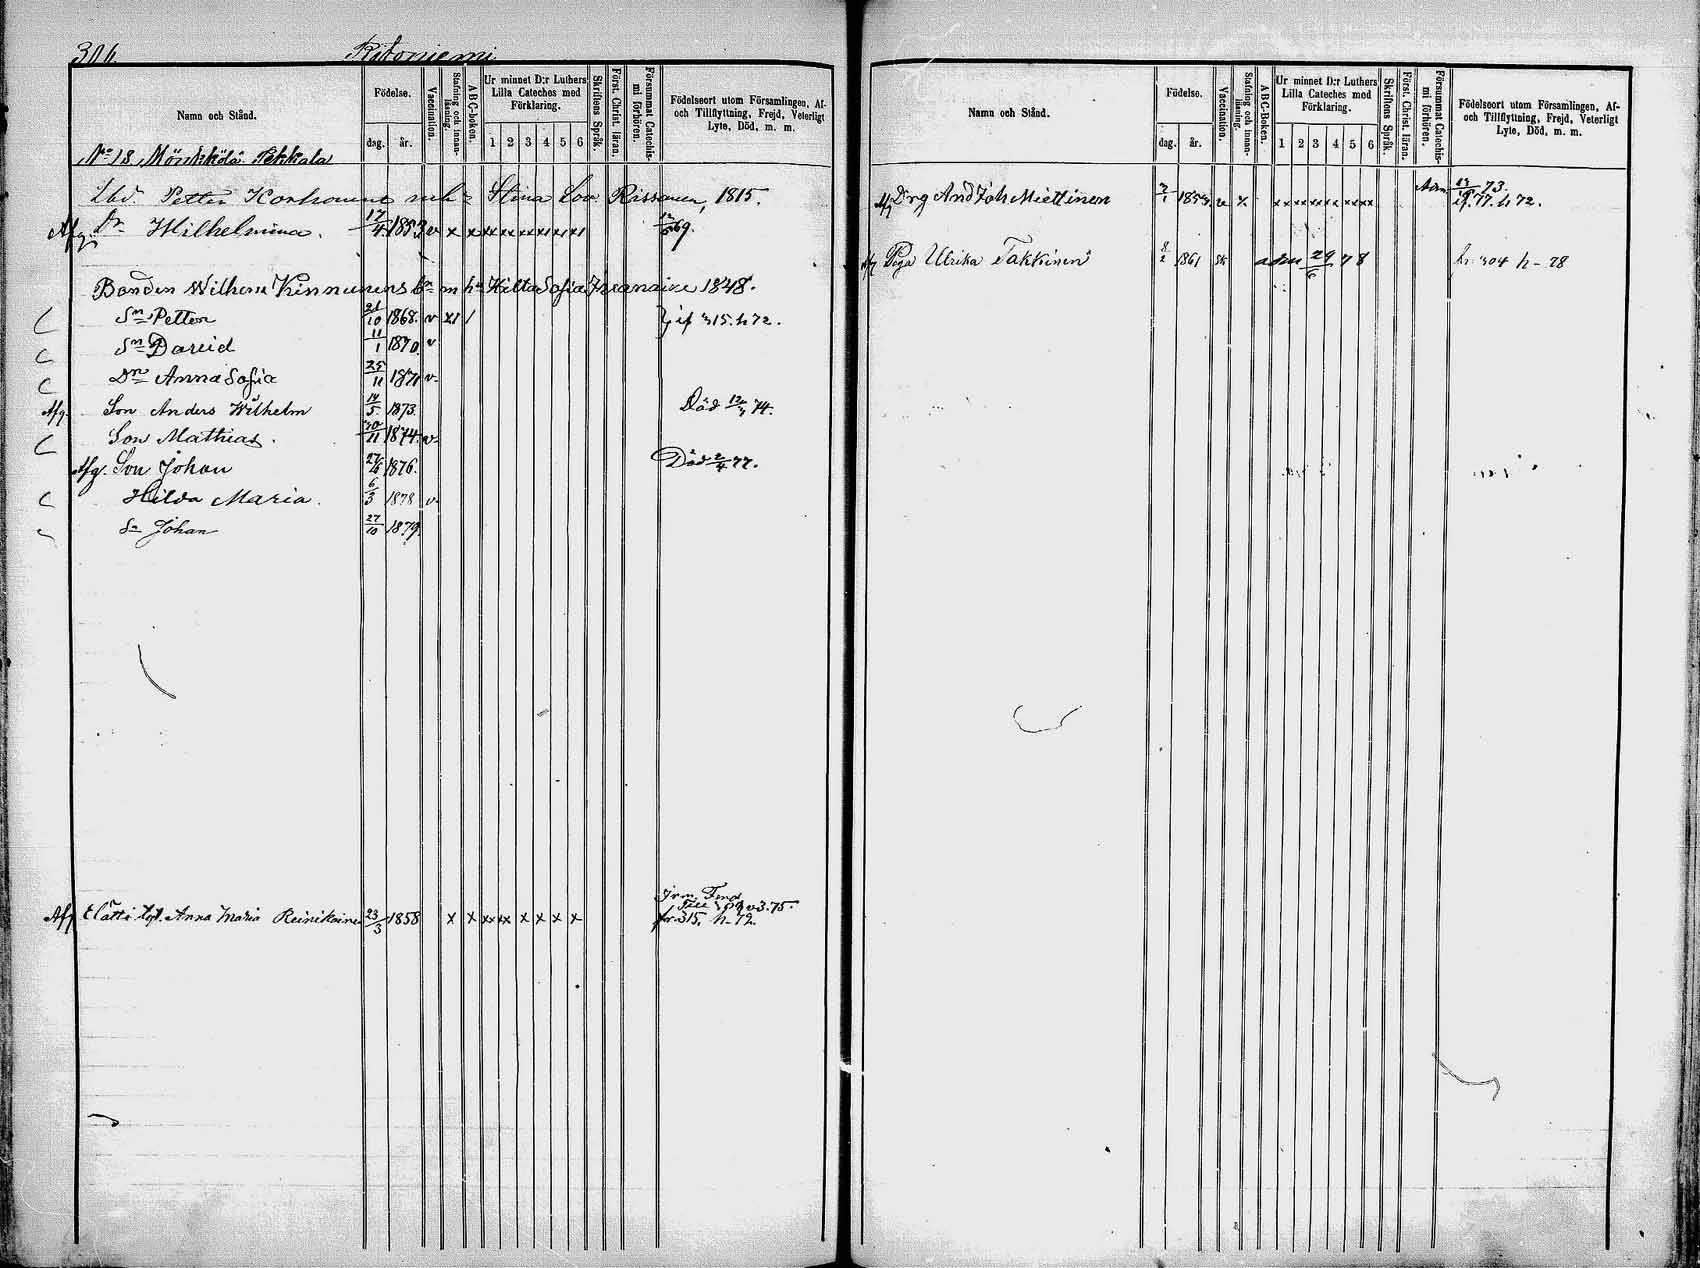 306 Ritoniemi
Namn och Stånd.
Födelse.
dag. år.
Vaccination.
Stafning och innan-läsning.
ABC-boken.
Ur minnet D:r Luthers Lilla Cateches med Förklaring.
1 2 3 4 5 6
Skriftens Språk.
Först. Christ. läran.
Försummat Catechis-mi förhören.
Födelseort utom Församlingen, Af- och Tillflyttning, Frejd, Veterligt Lyte, Död, m. m.
No 18 Pekkala
Petter Stina Lov Rissanen, 1815.
Afg. Dr Wilhelmina. 17/4 1853 v x x xx xx x x x x 69.
Bonden Wilhelm Kinnunens Sofia 1848.
Sn Petter 21/10 1868. v 315. h 72.
Sn David 11/1 1870. v
Dr Anna Sofia 25/11 1871 v.
Afg. Son Anders Wilhelm 14/5. 1873. Död 74.
Son Mathias. 30/11 1874. v.
Afg. Son Johan 1876. Död 2/4 77.
Hilda Maria. 6/3 1878 v.
Sn Johan 27/10 1879.
Afg Anna Maria Reinikainen 23/3 1858 x x xx xx x x x x 309 v 3.75.
fr. 315. h-72.
Namn och Stånd.
Födelse.
dag. år.
Vaccination.
Stafning och innan-läsning.
ABC-Boken.
Ur minnet D:r Luthers Lilla Cateches med Förklaring.
1 2 3 4 5 6
Skriftens Språk.
Först. Christ. läran.
Försummat Catechis-mi förhören.
Födelseort utom Församlingen, Af- och Tillflyttning, Frejd, Veterligt Lyte, Död, m. m.
Afg Drg And Joh Miettinen v x Adm 73.
77. h 72.
Afg Piga Ulrika Takkinen 8/2 1861 sk adm 29/6 78 fr 304 h-78